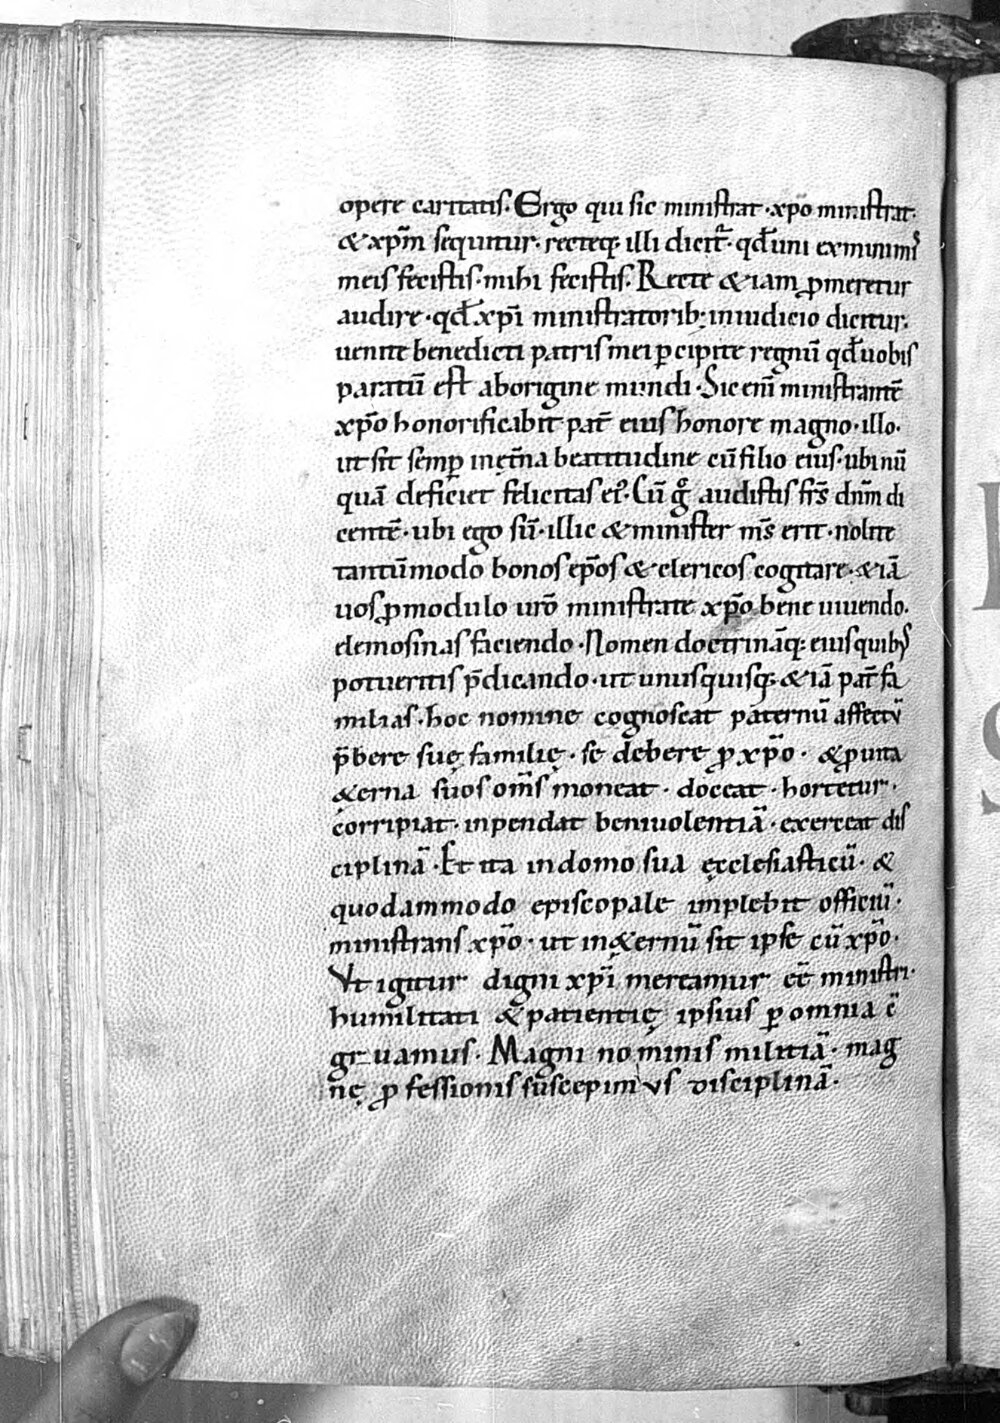 opere caritatis. Ergo qui sic ministrat. xp̄o ministrat.
& xp̄m sequitur. recteq; illi dicit̄. qd̄ uni ex minimis
meis fecistis. mihi fecistis. Recte & iam ꝓmeretur
audire. qd̄ xp̄i ministratorib; in iudicio dicitur.
uenite benedicti patris mei ꝑcipite regnū qd̄ uobis
paratū est ab origine mundi. Sic eni̅ ministrantē
xp̄o honorificabit pat̄ eius honore magno. illo.
ut sit semꝑ in et̄na beatitudine cū filio eius. ubi nū
quā deficiet felicitas ei᷒. Cū gͦ audistis frs̄ dnm̄ di
centē. ubi ego sū. illic & minister ms̄ erit. nolite
tantūmodo bonos ep̄os & clericos cogitare. & iā
uos ꝓ modulo ur̄o ministrate xp̄o bene uiuendo.
elemosinas faciendo. Nomen doctrināq; eius quibus
potueritis p̄dicando. ut unusquisq; & iā pat̄ fa
milias. hoc nomine cognoscat paternū affectū
p̄bere suę familię. se debere ꝓ xp̄o. & ꝓ uita
&erna suos om̄s moneat. doceat. hortetur.
corripiat. inpendat beniuolentiā. exerceat dis
ciplinā. Et ita in domo sua ęcclesiasticū. &
quodammodo episcopale implebit officiū.
ministrans xp̄o. ut in &ernū sit ipse cū xp̄o.
Vt igitur digni xp̄i mereamur eē ministri.
humilitati & patientię ipsius ꝑ omnia c̄
gruamus. Magni nominis militiā. mag
nę ꝓfessionis suscepimus disciplinā.